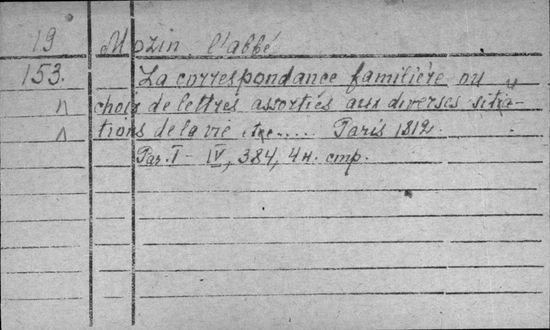 19 Mozin l'abbé
153. La correspondance familière ou
choix de lettres assorties aux diverses situa-
tions de la vie etc..... Paris 1812.
Par. I - IV, 384, 4н. стр.